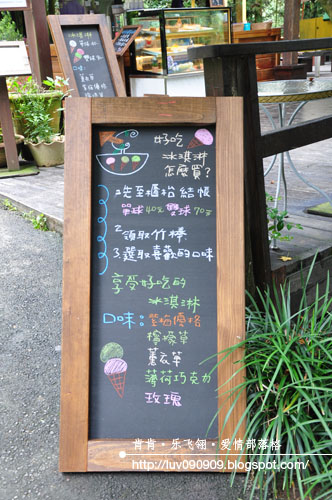 好吃
冰淇淋
怎麼買?
1.先至櫃枱結帳
單球40元 雙球70元
2.領取竹棒
3.選取喜歡的口味
享受好吃的
冰淇淋
口味:藍莓優格
檸檬草
薰衣草
薄荷巧克力
玫瑰
肯肯·乐飞翎·爱情部落格
http://luv090909.blogspot.com/